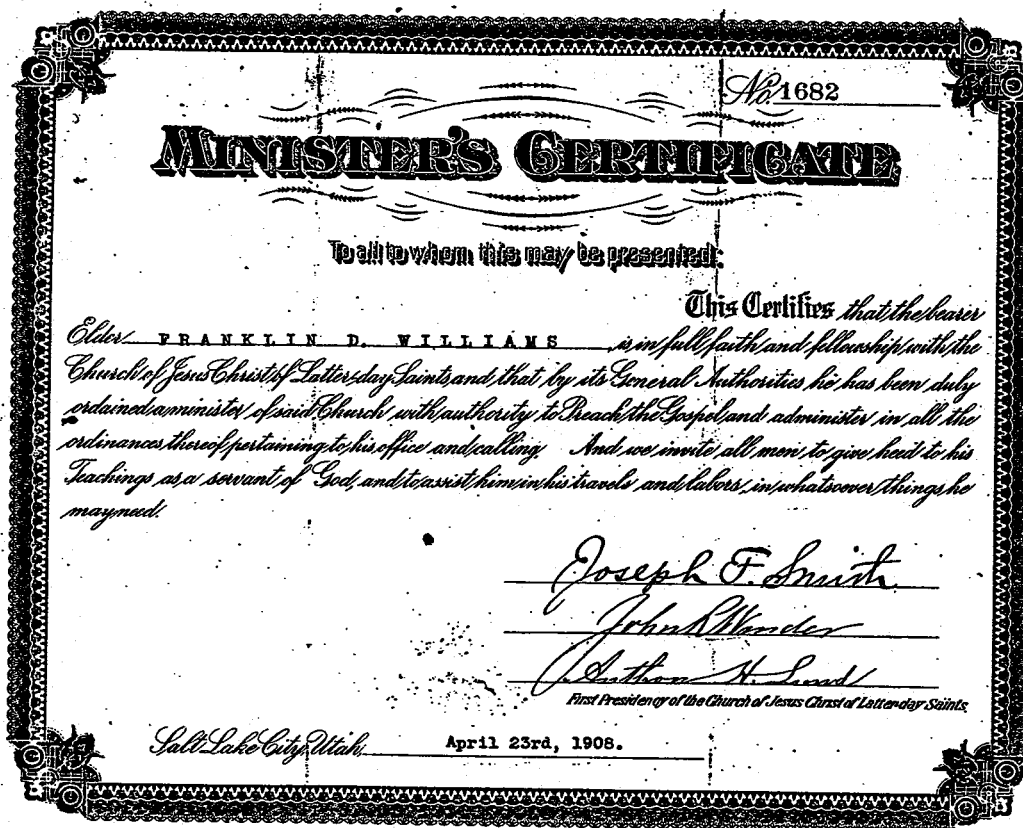 No. 1682
MINISTER'S CERTIFICATE
To all to whom this may be presented:
This Certifies that the bearer
Elder FRANKLIN D. WILLIAMS, is in full faith and fellowship with the
Church of Jesus Christ of Latter-day Saints, and that by its General Authorities he has been duly
ordained a minister of said Church with authority to Preach the Gospel and administer in all the
ordinances thereof pertaining to his office and calling. And we invite all men to give heed to his
Teachings as a servant of God, and to assist him in his travels and labors, in whatsoever things he
may need.
Joseph F. Smith
John R Winder
Anthon H. Lund
First Presidency of the Church of Jesus Christ of Latter-day Saints.
Salt Lake City, Utah, April 23rd, 1908.